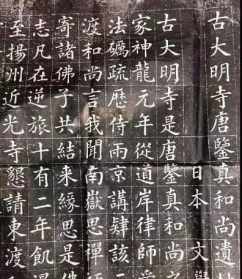 古大明寺唐鑒真和尚遺
日本 文學
古大明寺是唐鑒真和尚
家神龍元年從道岸律師受
法礪疏歷侍兩京講肆該三
渡和尚言我聞南嶽思禪師
寄諸佛子共結來緣思是佛
志凡在逆旅十有二年飢渴
至揚州延光寺懇請東渡